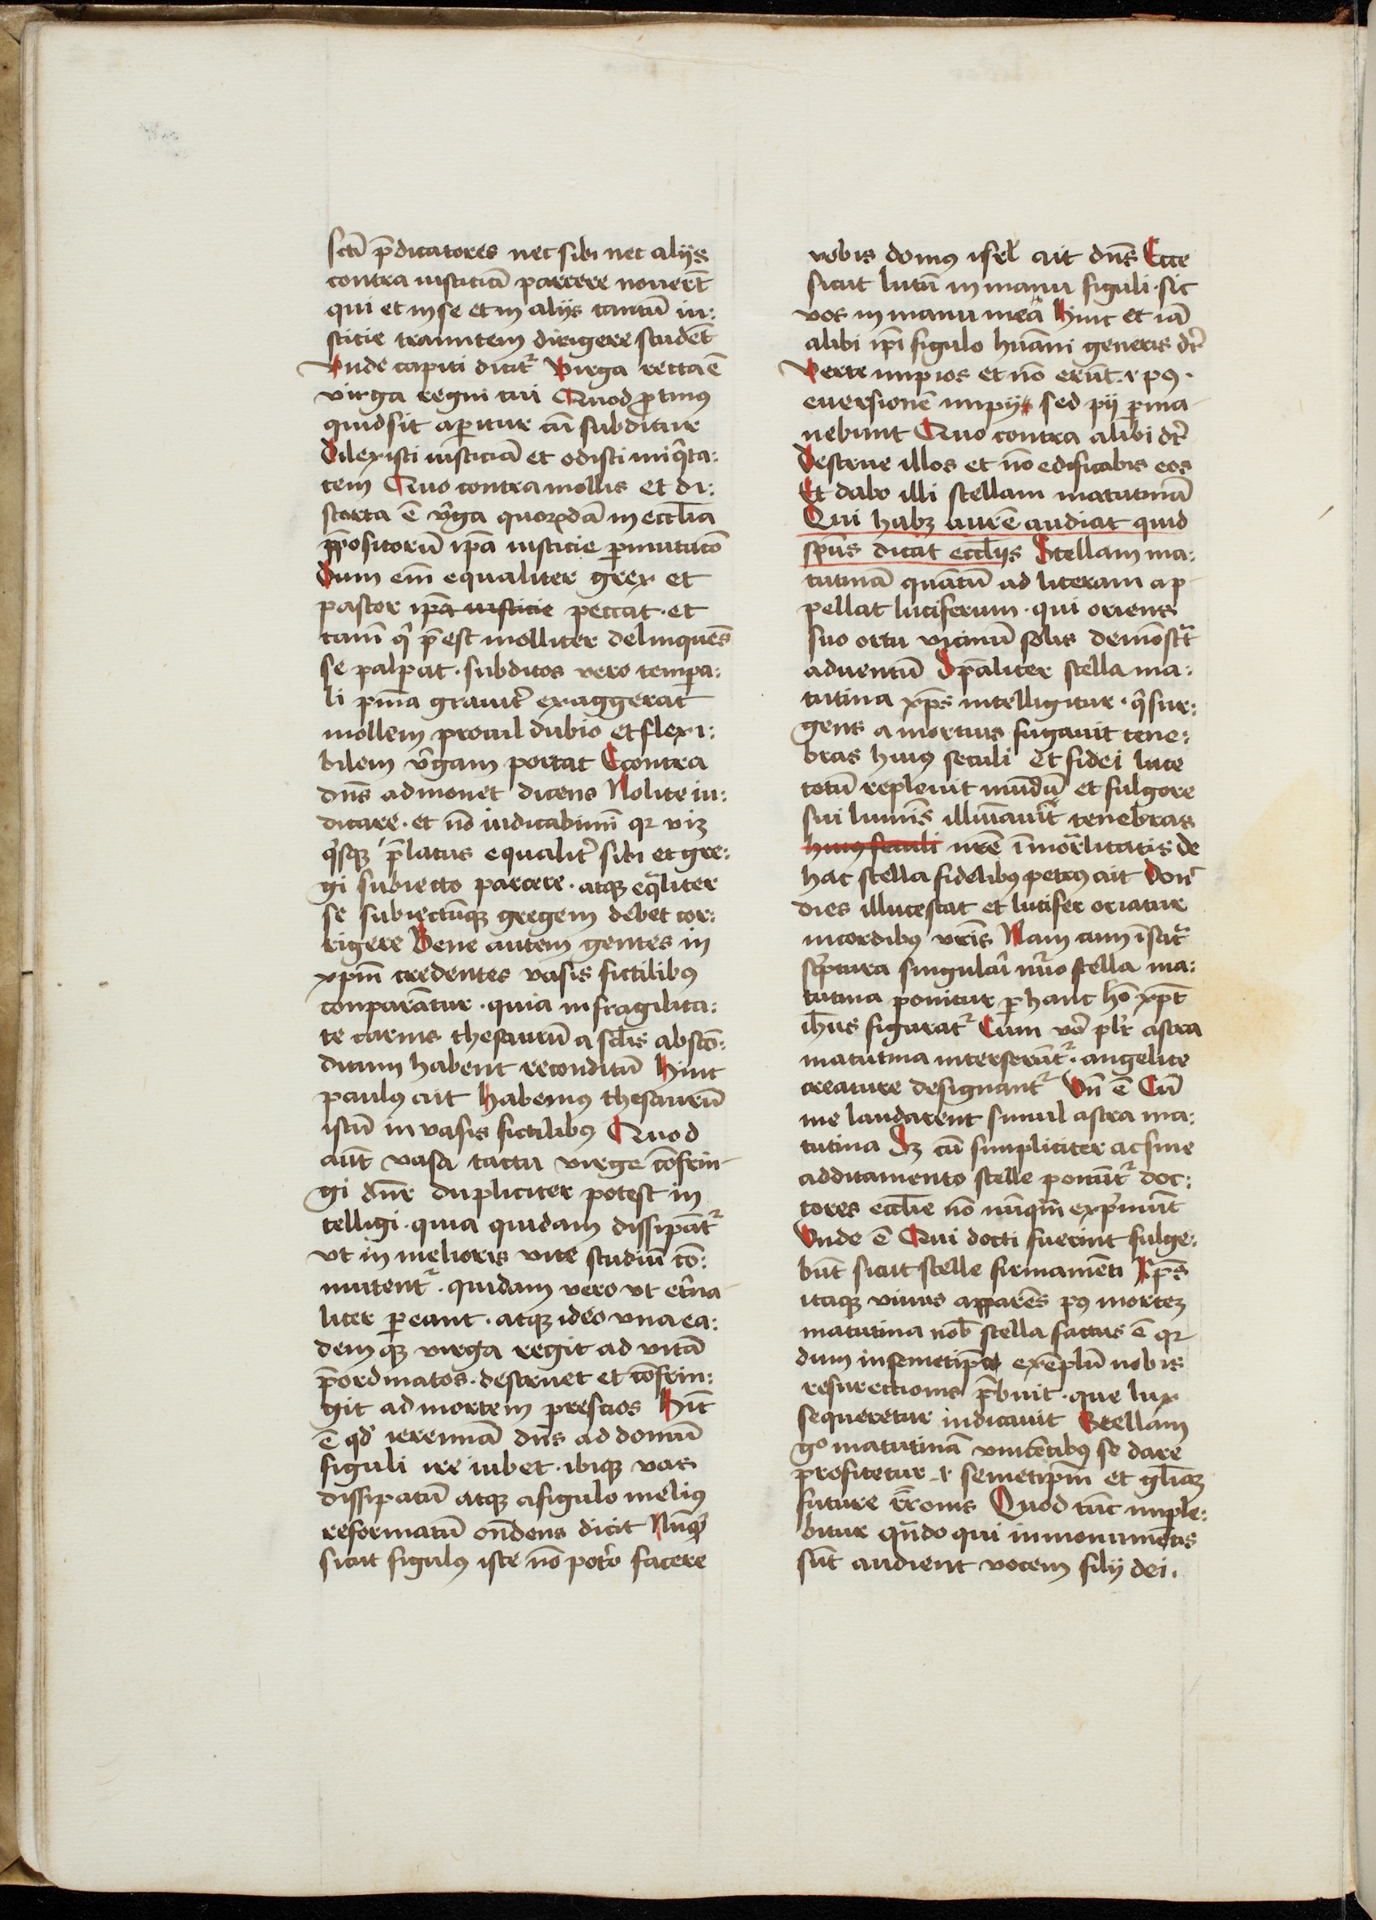 sctī p̄dicatores nec sibi nec aliis
contra iusticiā parcere nouerūt
qui et in se et in aliis tantū iu:
sticie tramitem dirigere studēt
Unde capiti dicit᷑ Virga recta ē
virga regni tui Quod ꝓtinus
quid sit aꝑitur cū subditur
Dilexisti iusticiā et odisti iniq̇ta:
tem Quo contra mollis et di:
storta ē v̇ga quorūdā in eccl̄ia
ꝓpositorū ip̄a iusticie ꝑmutacō
Dum em̄ equaliter grex et
pastor ip̄a iusticie peccat · et
tam̄ q̇ p̄est molliter delinquēs
se palpat · subditos vero tempa:
li pena grauit᷑ exaggerat
mollem procul dubio et flexi:
bilem v̇gam portat Econtra
dn̄s admonet dicens Nolite iu:
dicare · et nō iudicabimī qꝛ viꝫ
q̇sqꝫ p̄latus equalit᷑ sibi et gre:
gi subiecto parcere · atqꝫ eq̄liter
se subiectūqꝫ gregem debet cor:
rigere Bene autem gentes in
xpm̄ credentes vasis fictilibꝰ
conparātur · quia in fragilita:
te carnis thesaurū a sclīs abscō:
ditum habent reconditū Hinc
paulꝰ ait Habemus thesaurū
istū in vasis fictilibꝰ Quod
aūt vasa tactu virge cōfrin
gi dn̄r dupliciter potest in
telligi · quia quidam dissipāt᷑
vt in melioris vite studiū cō:
mutent᷑ · quidam vero vt et̄na
liter ꝑeant · atqꝫ ideo vna ea:
dem qꝫ virga regit ad vitā
p̄ordinatos · destruet et cōfrin:
git ad mortem prescios Hīc
ē qd̓ ieremiā dn̄s ad domū
figuli ire iubet · ibiqꝫ vas
dissipatū atqꝫ a figulo melius
reformatū on̄dens dicit Nūq̇d
sicut figulus iste nō potero facere
vobis domꝰ isrl̄ ait dn̄s Ecce
sicut lutū in manu figuli · sic
vos in manu mea Hinc et iā
alibi ip̄i figulo hūani generis dr̄
Verte impios et nō erūt · i · pꝰ ·
euersionē impij sed pij ꝑma
nebunt Quo contra alibi dr̄
Destrue illos et nō edificabis eos
Et dabo illi stellam matutinā
Qui habꝫ aurē audiat quid
spūs dicat eccl̄ijs Stellam ma:
tutinā quātū ad literam ap
pellat luciferum · qui oriens
suo ortu vicinū solis demōst᷑
aduentū Spāliter stella ma:
tutina xps̄ intelligitur · q̇ sur:
gens a mortuis fugauit tene:
bras huiꝰ seculi et fidei luce
totū repleuit mūdū et fulgore
sui lumīs illuīauit tenebras
huius seculi nr̄e īmōrlitatis de
hac stella fidelibꝰ petrꝰ ait Don̄
dies illucescat et lucifer oriatur
in cordibꝰ vr̄is Nam cum ī sac᷑
sc̓ptura singulari nu̅o stella ma:
tutina ponitur ꝑ hanc hō xp̄c
ih̄us figurat᷑ Cum vo̓ plr̄ astra
matutina interserūt᷑ · angelice
creature designant᷑ Vn̄ ē Cū
me laudarent simul astra ma:
tutina Sꝫ cū simpliciter ac sine
additamento stelle ponūt᷑ doc:
tores eccl̄ie nō nūqm̄ exp̓munt
Unde ē Qui docti fuerint fulge:
būt sicut stelle firmamēti Xp̄s
itaqꝫ viuus apparēs pꝰ mortē
matutina nob̄ stella factus ē qꝛ
dum in semetip̄o exēplū nobis
resurectionis p̄buit · que lux
sequeretur indicauit Stellam
gͦ matutinā vincētibꝰ se dare
profitetur · i · semetip̄m et gl̄iaꝫ
future rr̄onis Quod tūc imple:
bitur qn̄do qui in monumētis
sūt audient vocem filij dei ·